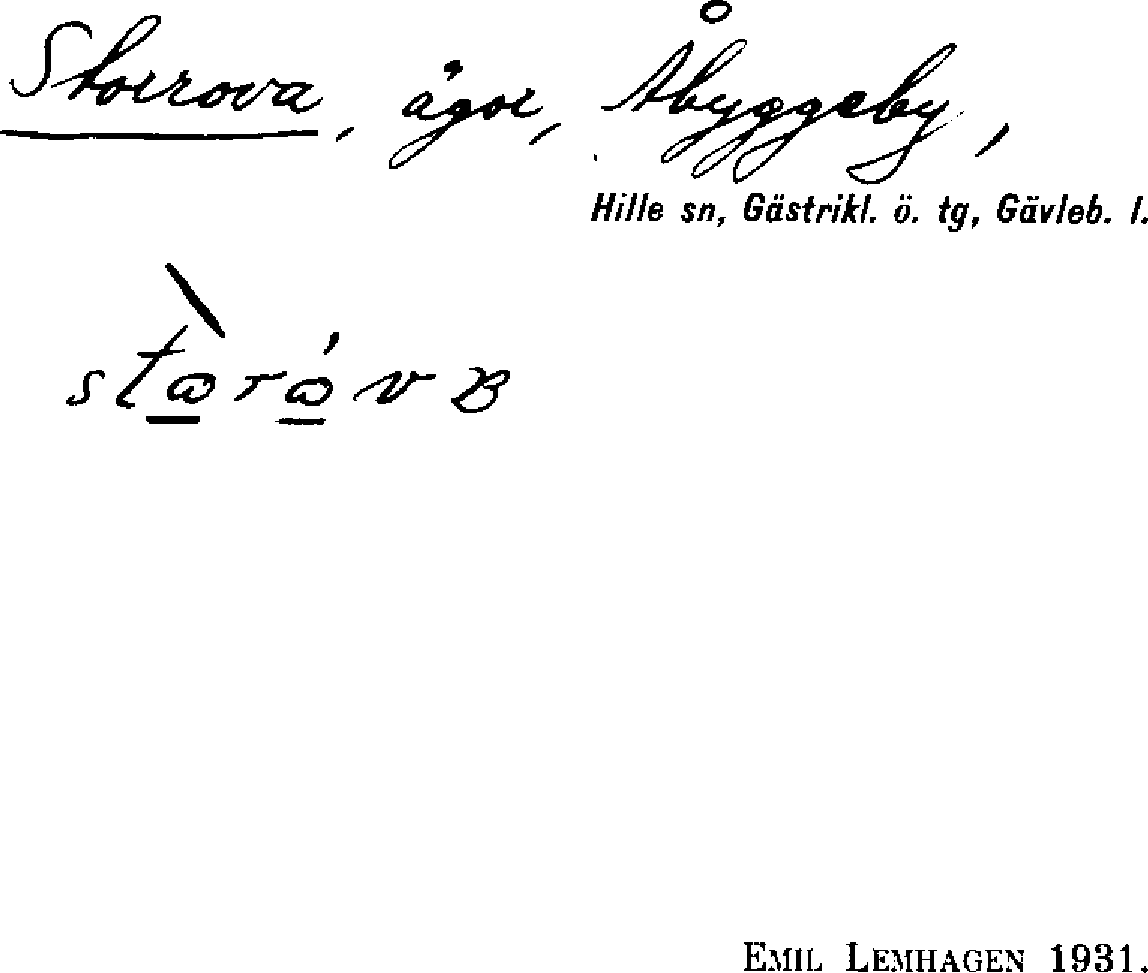 Storrova, ägor, Åbyggeby,
Hille sn, Gästrikl. ö. tg, Gävleb. l.
EMIL LEMHAGEN 1931.